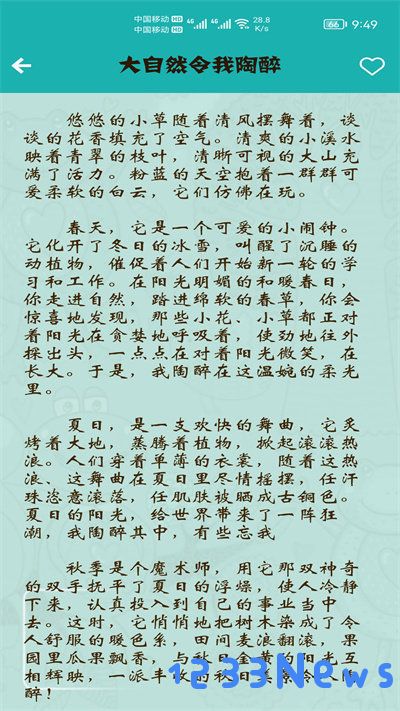 中国移动 HD 4G 4G 28.8 K/s 66 9:49
中国移动 HD
大自然令我陶醉
悠悠的小草随着清风摆舞着，谈
谈的花香填充了空气。清爽的小溪水
映着青翠的枝叶，清晰可视的大山充
满了活力。粉蓝的天空抱着一群群可
爱柔软的白云，它们仿佛在玩。
春天，它是一个可爱的小闹钟。
它化开了冬日的冰雪，叫醒了沉睡的
动植物，催促着人们开始新一轮的学
习和工作。在阳光明媚的和暖春日，
你走进自然，踏进绵软的春草，你会
惊喜地发现，那些小花、小草都正对
着阳光在贪婪地呼吸着，使劲地往外
探出头，一点点在对着阳光微笑，在
长大。于是，我陶醉在这温婉的柔光
里。
夏日，是一支欢快的舞曲，它炙
烤着大地，蒸腾着植物，掀起滚滚热
浪。人们穿着单薄的衣裳，随着这热
浪、这舞曲在夏日里尽情摇摆，任汗
珠恣意滚落，任肌肤被晒成古铜色。
夏日的阳光，给世界带来了一阵狂
潮，我陶醉其中，有些忘我
秋季是个魔术师，用它那双神奇
的双手抚平了夏日的浮燥，使人冷静
下来，认真投入到自己的事业当中
去。这时，它悄悄地把树木染成了令
人舒服的暖色系，田间麦浪翻滚，果
园里瓜果飘香，与秋日金黄的阳光互
相辉映，一派丰收的秋日
醉！
1233News